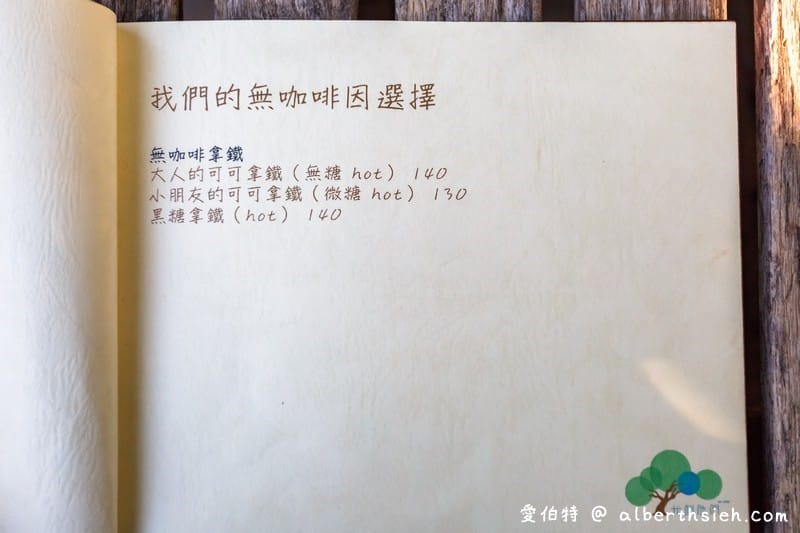 我們的無咖啡因選擇
無咖啡拿鐵
大人的可可拿鐵（無糖 hot） 140
小朋友的可可拿鐵（微糖 hot） 130
黑糖拿鐵（hot） 140
愛伯特 @ alberthsieh.com